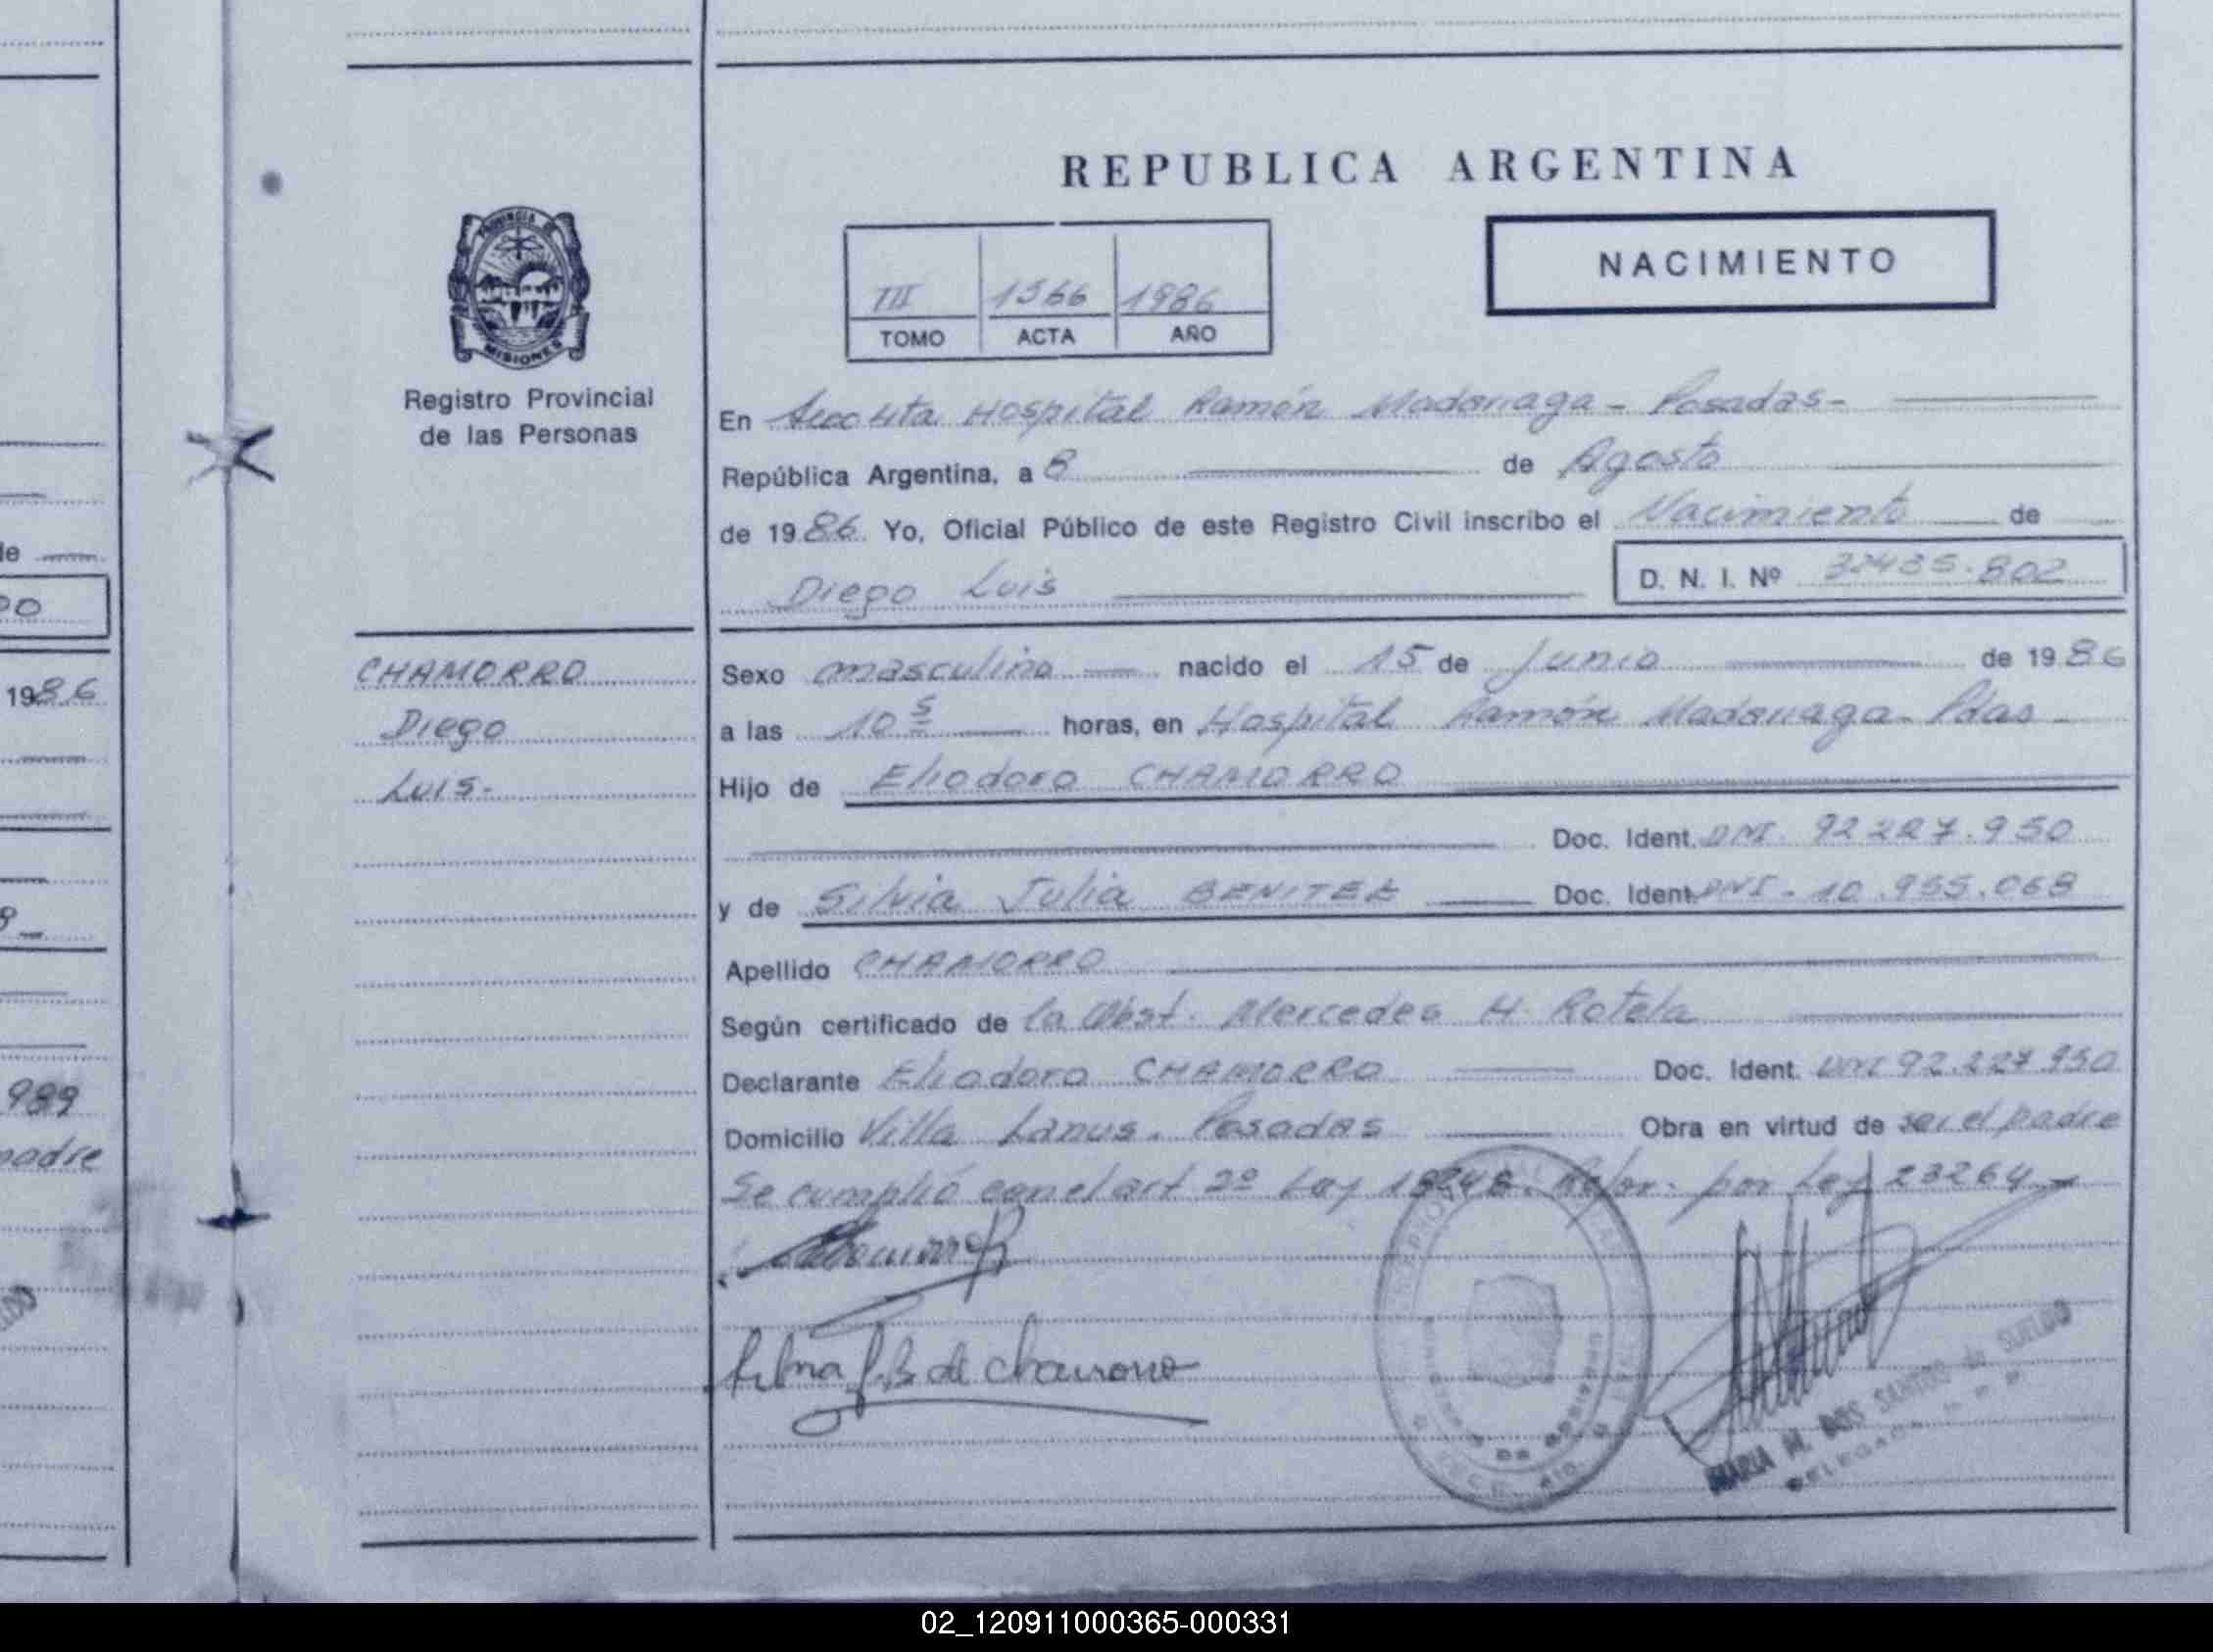 REPUBLICA ARGENTINA
NACIMIENTO
PROVINCIA DE
MISIONES
Registro Provincial
de las Personas
III 1366 1986
TOMO ACTA AÑO
En Hospital Ramón Madariaga - Posadas -
República Argentina, a 8 de Agosto
de 1986. Yo, Oficial Público de este Registro Civil inscribo el Nacimiento de
Diego Luis D. N. I. Nº 32435.802
CHAMORRO
Diego
Luis.-
Sexo masculino nacido el 15 de Junio de 1986
a las 10 5 horas, en Hospital Ramón Madariaga - Pdas -
Hijo de Eliodoro CHAMORRO
Doc. Ident. DNI. 92227.950
y de Silvia Julia BENITEZ Doc. Ident. DNI - 10.955.068
Apellido CHAMORRO
Según certificado de la Obst. Mercedes H. Rotela
Declarante Eliodoro CHAMORRO Doc. Ident. DNI 92.227.950
Domicilio Villa Lanus. Posadas Obra en virtud de ser el padre
Se cumplió con el art 2º Ley 18248. Refor. por Ley 23264 -
J. B. de Chamorro
MARIA M. DOS SANTOS de SUELDO
DELEGADA
de
00
1986
8
989
padre
02_120911000365-000331